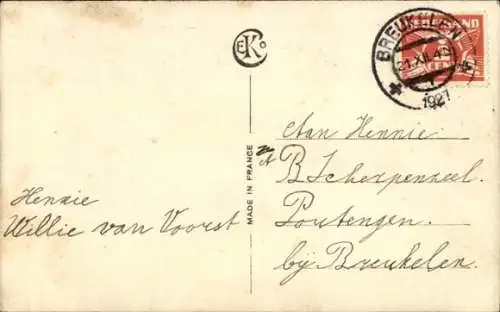 EKC
BREUKELEN
21.XII.4
1927
NEDERLAND
Aan Hennie
B Scherpenzeel.
Portengen.
bij Breukelen.
Hennie
Willie van Voorst
MADE IN FRANCE